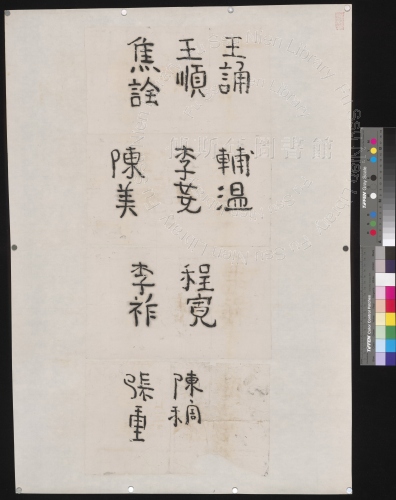 王誦
王順
焦詮
輔温
李芝
陳美
程寬
李祚
陳稠
張重